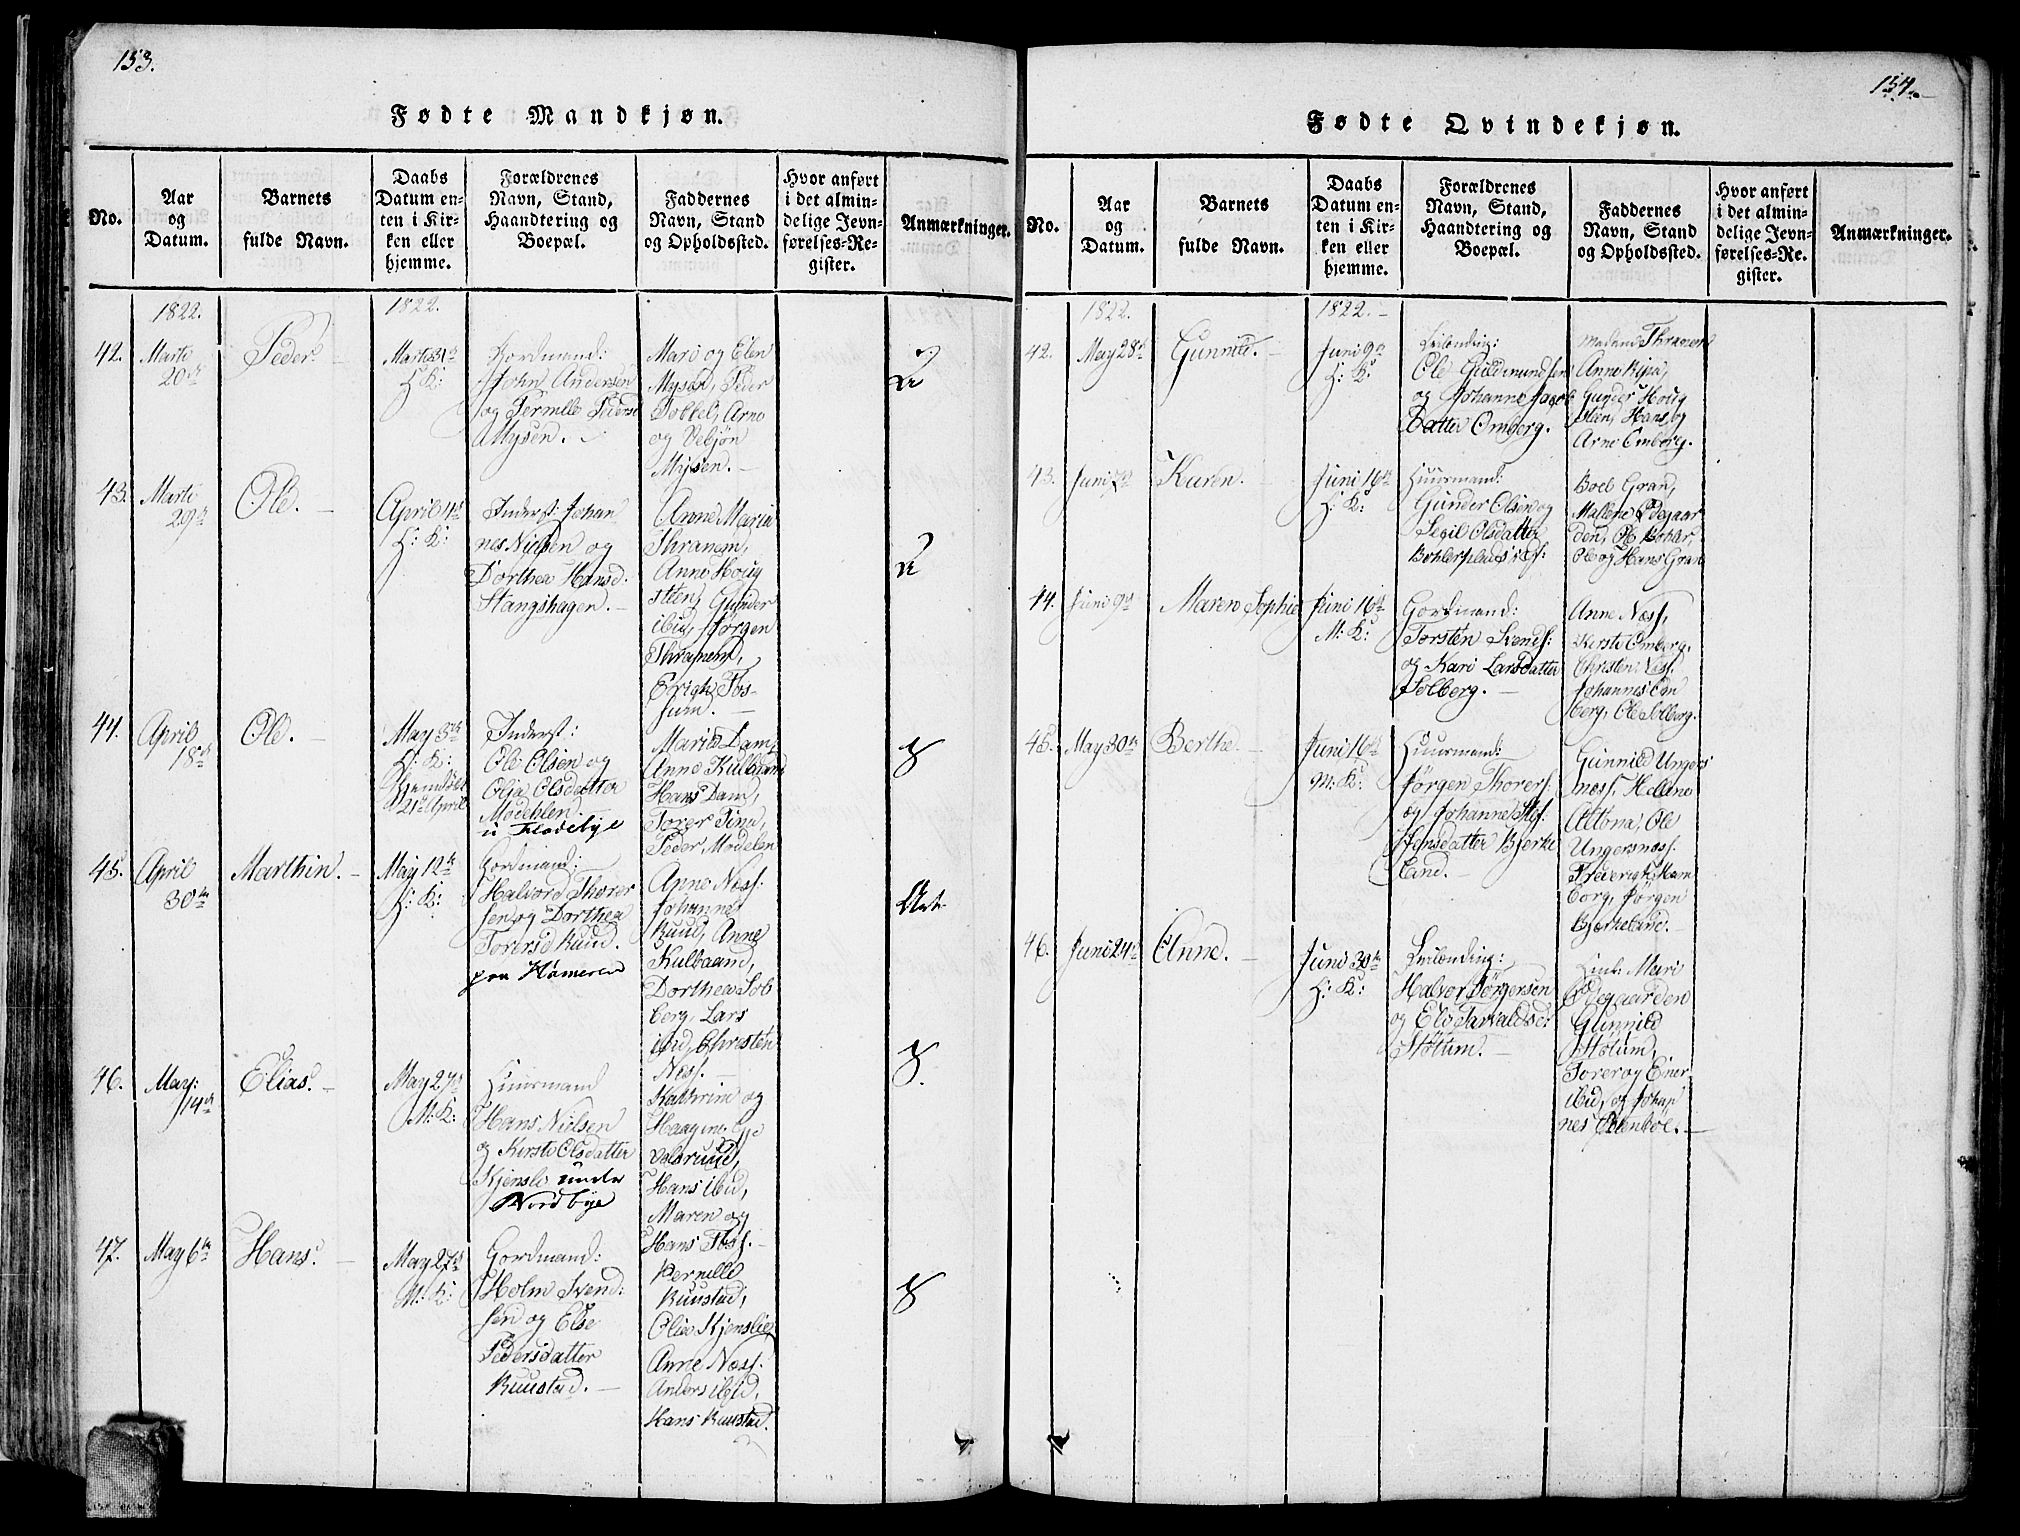 153.
Fødte Mandkjøn.
No.
Aar
og
Datum.
Barnets
fulde Navn.
Daabs
Datum en-
ten i Kir-
ken eller
hjemme.
Forældrenes
Navn, Stand,
Haandtering og
Boepæl.
Faddernes
Navn, Stand
og Opholdssted.
Hvor anført
i det almin-
delige Jevn-
førelses-Re-
gister.
Anmærkninger.
1822.
1822.
42.
Marti
20de
Peder
Marti 31te
H: K:
Gordmand:
John Andersen
og Pernille Peders
Mysen.
Mari og Elen
Mysen, Peder
Tobbel, Arne
og Vebjön
Mysen.
43.
Marti
29de
Ole.
April
H: K:
Inderst: Johan
nes Nielsen og
Dorthea Hansd.
Stangshagen.
Anne Maria
Thranem,
Anne Houg
steen, Gunder
ibid, Jørgen
Thranem,
Erigh Fos-
sum.
44.
April
18de
Ole.
May
H: K:
Hjemdöbt
21de April
Inderst:
Ole Olsen og
Olia Olsdatter
Modehlen.
u Flodebye
Maria Dam,
Anne Kulbaand
Hans Dam,
Torer
Peder Modelen
45.
April
30te
Marthin.
May 12te
H: K:
Gordmand:
Halvord Thorer
sen og Dorthea
Torersd Ruud.
paa Hameren
Anne Næss.
Johanne
Ruud, Anne
Kulbaand,
Dorthea Sol
berg, Lars
ibid, Christen
Næss.
46.
May:
14de
Elias.
May 27de
M: K:
Huusmand
Hans Nielsen
og Kersti Olsdatter
Kjensli under
Nordbye
Kathrine og
Haagine
valsruud,
Hans ibid,
Maren og
Hans Foss.
47.
May 6te
Hans.
May 27de
M: K:
Gordmand:
Holm Svend-
sen og Else
Pedersdatter
Ruustad.
Pernille
Ruustad,
Olia Kjenslie,
Anne Næss.
Anders ibid,
Hans Ruustad.
154.
Fødte Qvindekjøn.
No.
Aar
og
Datum.
Barnets
fulde Navn.
Daabs
Datum en-
ten i Kir-
ken eller
hjemme.
Forældrenes
Navn, Stand,
Haandtering og
Boepæl.
Faddernes
Navn, Stand
og Opholdssted.
Hvor anført
i det almin-
delige Jevn-
førelses-Re-
gister.
Anmærkninger.
1822.
1822.
42.
May 28de
Gunnil.
Juni 9de
H: K:
Leilænding:
Ole Guldmundsen
og Johanne Jacob
Datter Omberg.
Madame Thranem
Anne Ripa,
Gunder Houg
sten, Hans og
Arne Omberg.
43.
Juni
Karen.
Juni 16te
H: K:
Huusmand:
Gunder Olsen og
Segil Olsdatter
Bohlerplads
Boel Gran,
Mallene Ødegaar
den, Ole Bohler,
Ole og Hans Gran
44.
Juni 9de
Maren Sophie
Juni 16te
M: K:
Gordmand:
Torsten Svends:
og Kari Larsdatter
Solberg.
Anne Næss,
Kersti Omberg.
Christen Næss.
Johannes Om
berg, Ole Solberg.
45.
May 30te
Berthe.
Juni 16te
M: K:
Huusmand:
Jørgen Thorers:
og Johanne
Jensdatter Bjerke
land.
Gunnild Ungers
næss. Hellene
Altona, Ole
Ungersnæss.
Frederigh Ham
borg, Jørgen
Bjerkeland.
46.
Juni 24de
Anne.
Juni 30te
H: K:
Leilænding:
Halvor Jørgensen
og Eli Tarvaldsd:
Støtum.
Mari
Ødegaarden
Gunnild
Støtum,
Torer og Ener
ibid, og Johan
nes